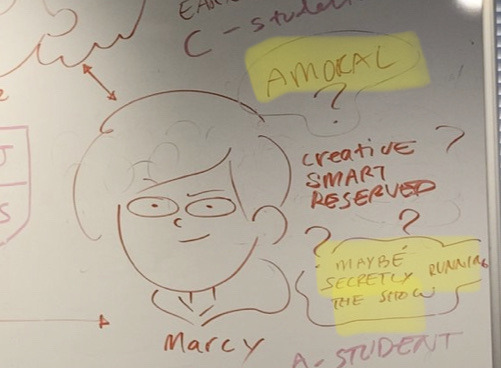 C-Student
AMORAL
?
creative ?
SMART
RESERVED
? ?
MAYBE
SECRETLY RUNNING
THE SHOW
Marcy
A-STUDENT